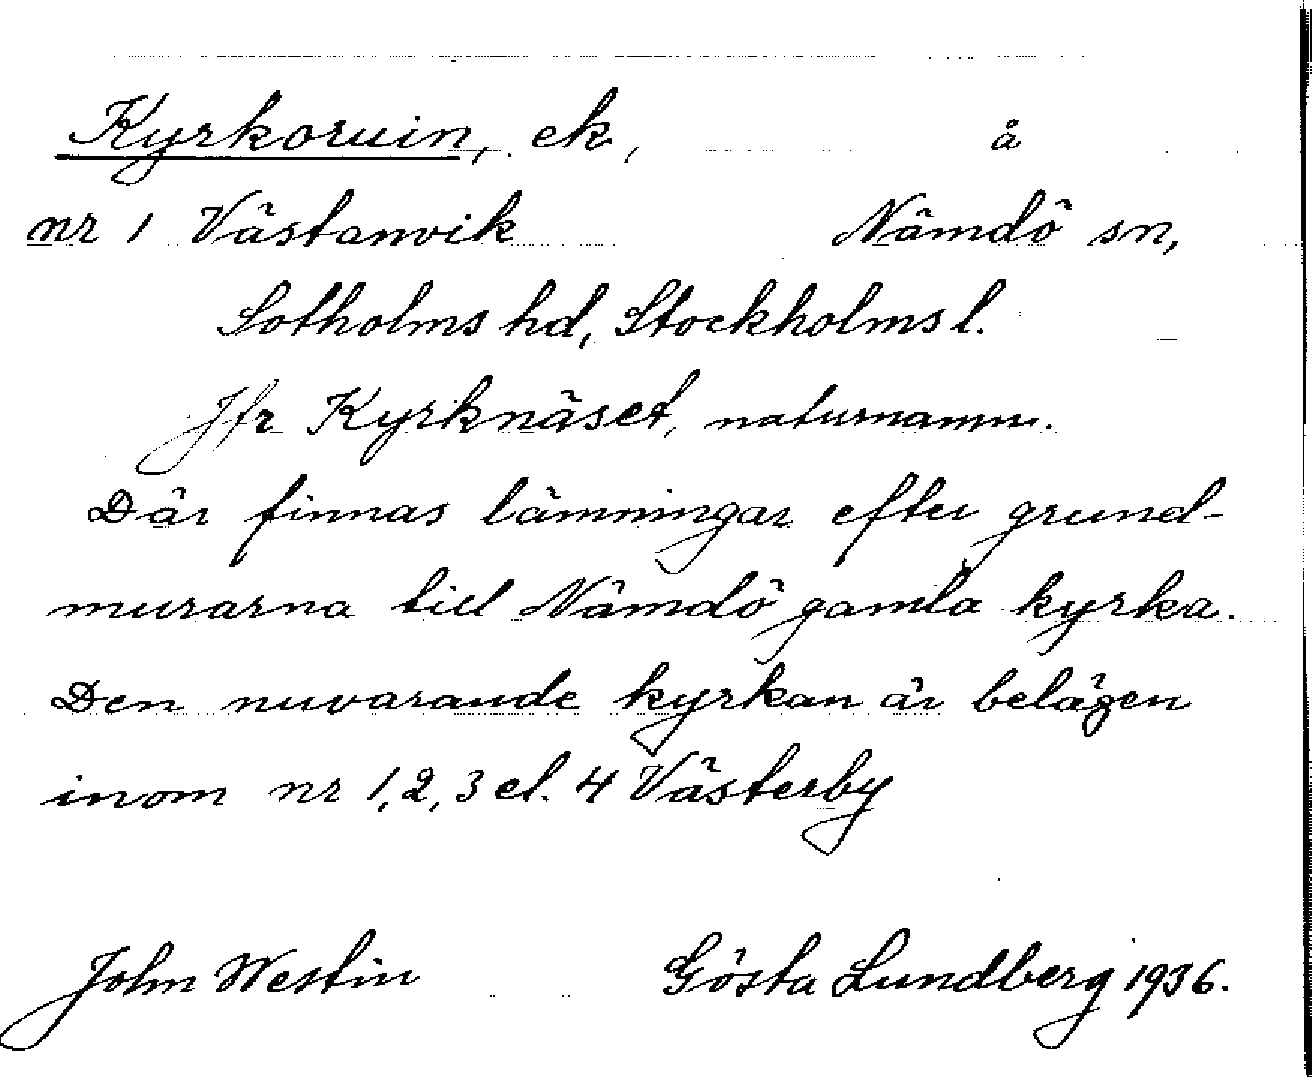 Kyrkoruin, ek, å
nr 1 Västanvik Nämdö sn,
Sotholms hd, Stockholms l.
Jfr Kyrknäset, naturnamn.
Där finnas lämningar efter grund-
murarna till Nämdö gamla kyrka.
Den nuvarande kyrkan är belägen
inom nr 1, 2, 3 el. 4 Västerby
John Westin Gösta Lundberg 1936.